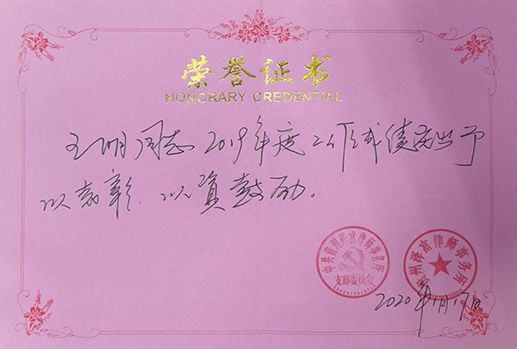 荣誉证书
HONORARY CREDENTIAL
王明同志2019年度工作成绩突出予
以表彰、以资鼓励。
支部委员会
律师事务所
2020年1月17日